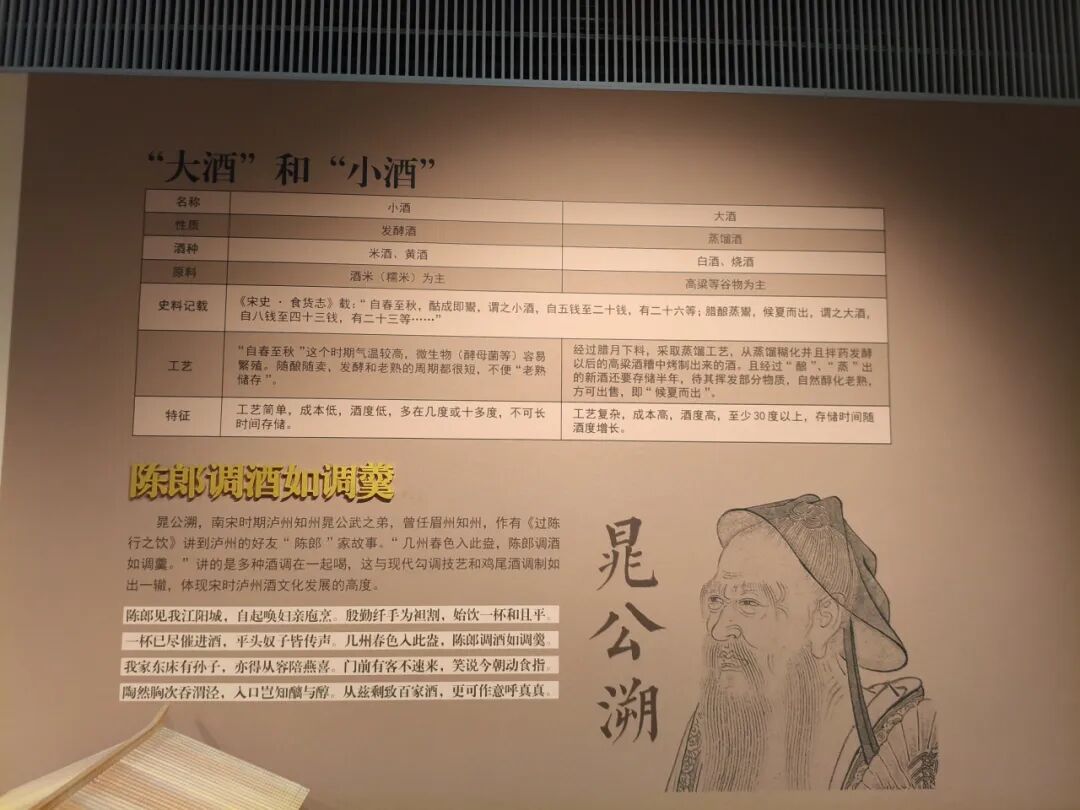 “大酒”和“小酒”
名称 小酒 大酒
性质 发酵酒 蒸馏酒
酒种 米酒、黄酒 白酒、烧酒
原料 酒米（糯米）为主 高粱等谷物为主
史料记载
《宋史 · 食货志》载：“自春至秋，酤成即鬻，谓之小酒，自五钱至二十钱，有二十六等；腊酿蒸鬻，候夏而出，谓之大酒，
自八钱至四十三钱，有二十三等……”
工艺
“自春至秋”这个时期气温较高，微生物（酵母菌等）容易
繁殖。随酿随卖，发酵和老熟的周期都很短，不便“老熟
储存”。
经过腊月下料，采取蒸馏工艺，从蒸馏糊化并且拌药发酵
以后的高粱酒糟中烤制出来的酒。且经过“酿”、“蒸”出
的新酒还要存储半年，待其挥发部分物质，自然醇化老熟，
方可出售，即“候夏而出”。
特征
工艺简单，成本低，酒度低，多在几度或十多度，不可长
时间存储。
工艺复杂，成本高，酒度高，至少30度以上，存储时间随
酒度增长。
陈郎调酒如调羹
晁公溯，南宋时期泸州知州晁公武之弟，曾任眉州知州，作有《过陈
行之饮》讲到泸州的好友“陈郎”家故事。“几州春色入此盎，陈郎调酒
如调羹。”讲的是多种酒调在一起喝，这与现代勾调技艺和鸡尾酒调制如
出一辙，体现宋时泸州酒文化发展的高度。
陈郎见我江阳城，自起唤妇亲庖烹。殷勤纤手为袒割，始饮一杯和且平。
一杯已尽催进酒，平头奴子皆传声。几州春色入此盎，陈郎调酒如调羹。
我家东床有孙子，亦得从容陪燕喜。门前有客不速来，笑说今朝动食指。
陶然胸次吞渭泾，入口岂知醨与醇。从兹剩致百家酒，更可作意呼真真。
晁公溯